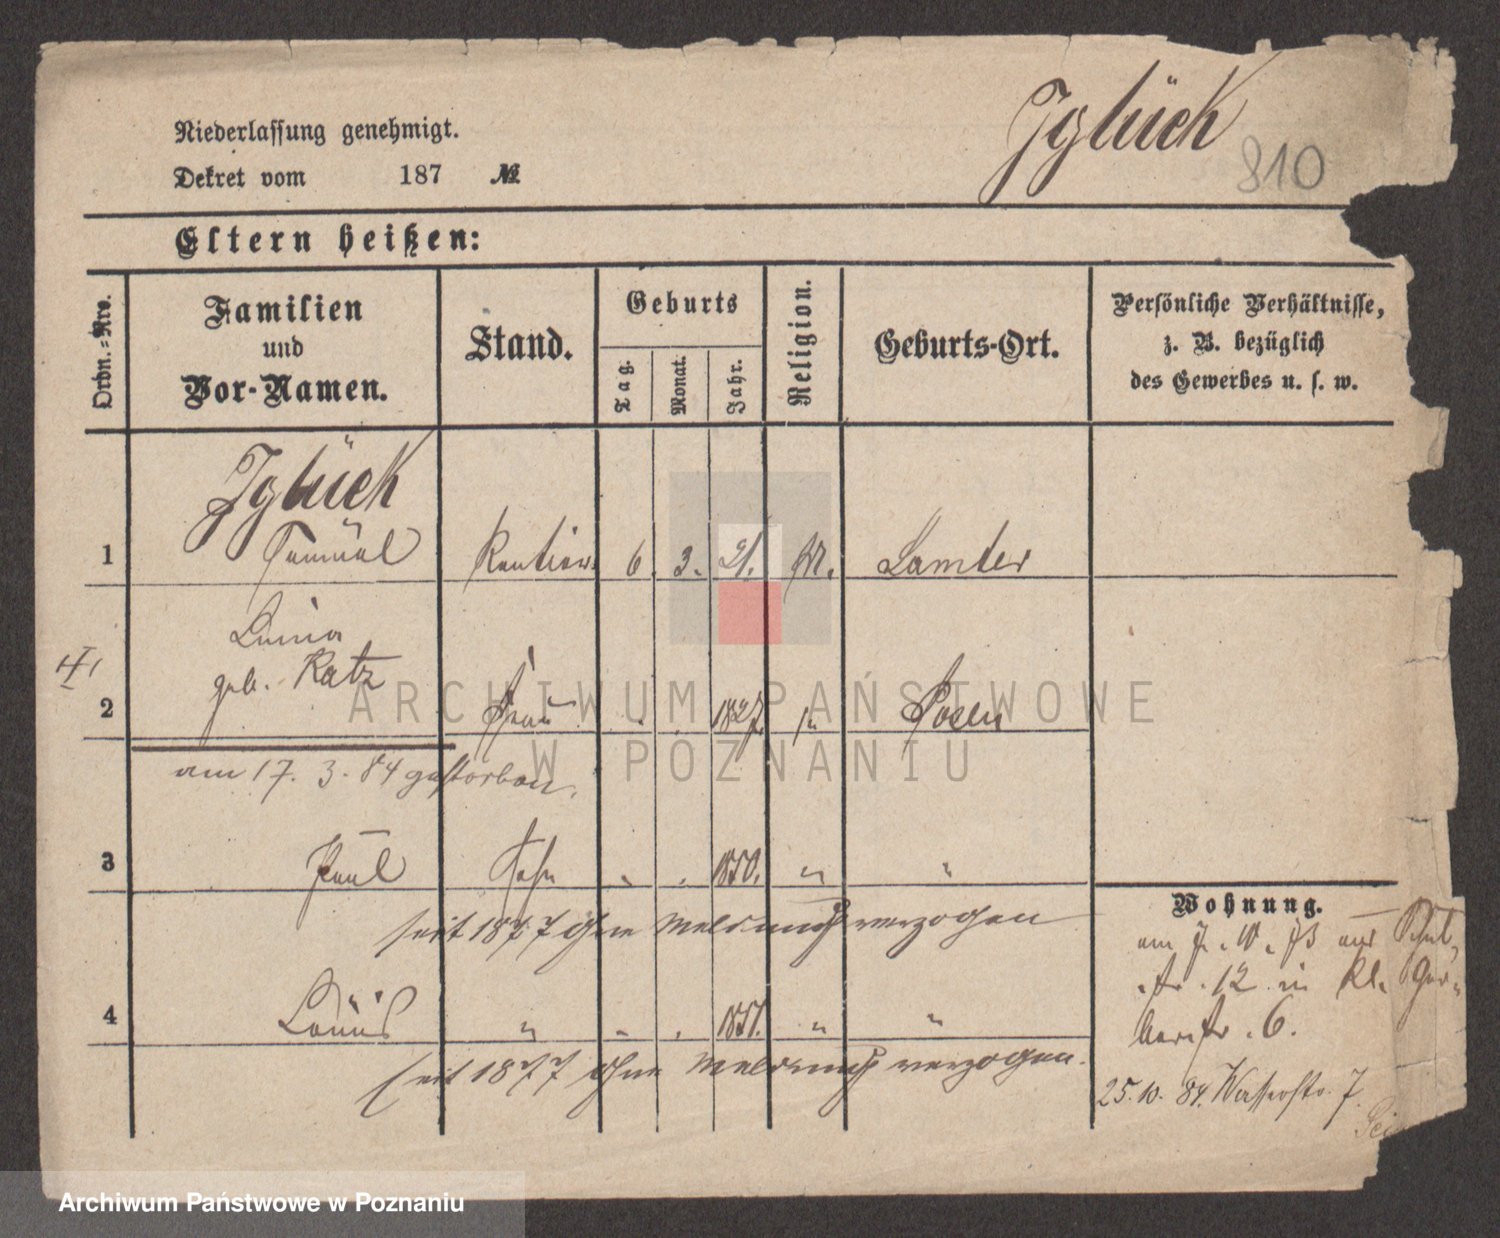 Jglück
810
Niederlassung genehmigt.
Dekret vom 187 №
Eltern heißen:
Ordn.-Nro.
Familien
und
Vor-Namen.
Stand.
Geburts
Tag.
Monat.
Jahr.
Religion.
Geburts-Ort.
Persönliche Verhältnisse,
z. B. bezüglich
des Gewerbes u. s. w.
Jglück
1 Samuel Rentier 6. 3. 21. M. Samter
geb. Katz
2 Frau 1827. " Posen
am 17. 3. 84 gestorben.
3 Paul Sohn " " 1850. " "
seit 1877 ohne Meldung verzogen
4 Louis " " " 1851. " "
seit 1877 ohne Meldung verzogen.
Wohnung.
12 in Kl. Ger-
berstr. 6.
25. 10. 84. Wasserstr. 7.
ARCHIWUM PAŃSTWOWE
W POZNANIU
Archiwum Państwowe w Poznaniu